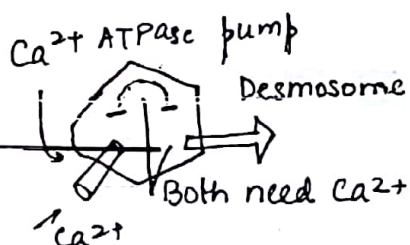 Ca²⁺ ATPase pump
Desmosome
Both need Ca²⁺
Ca²⁺